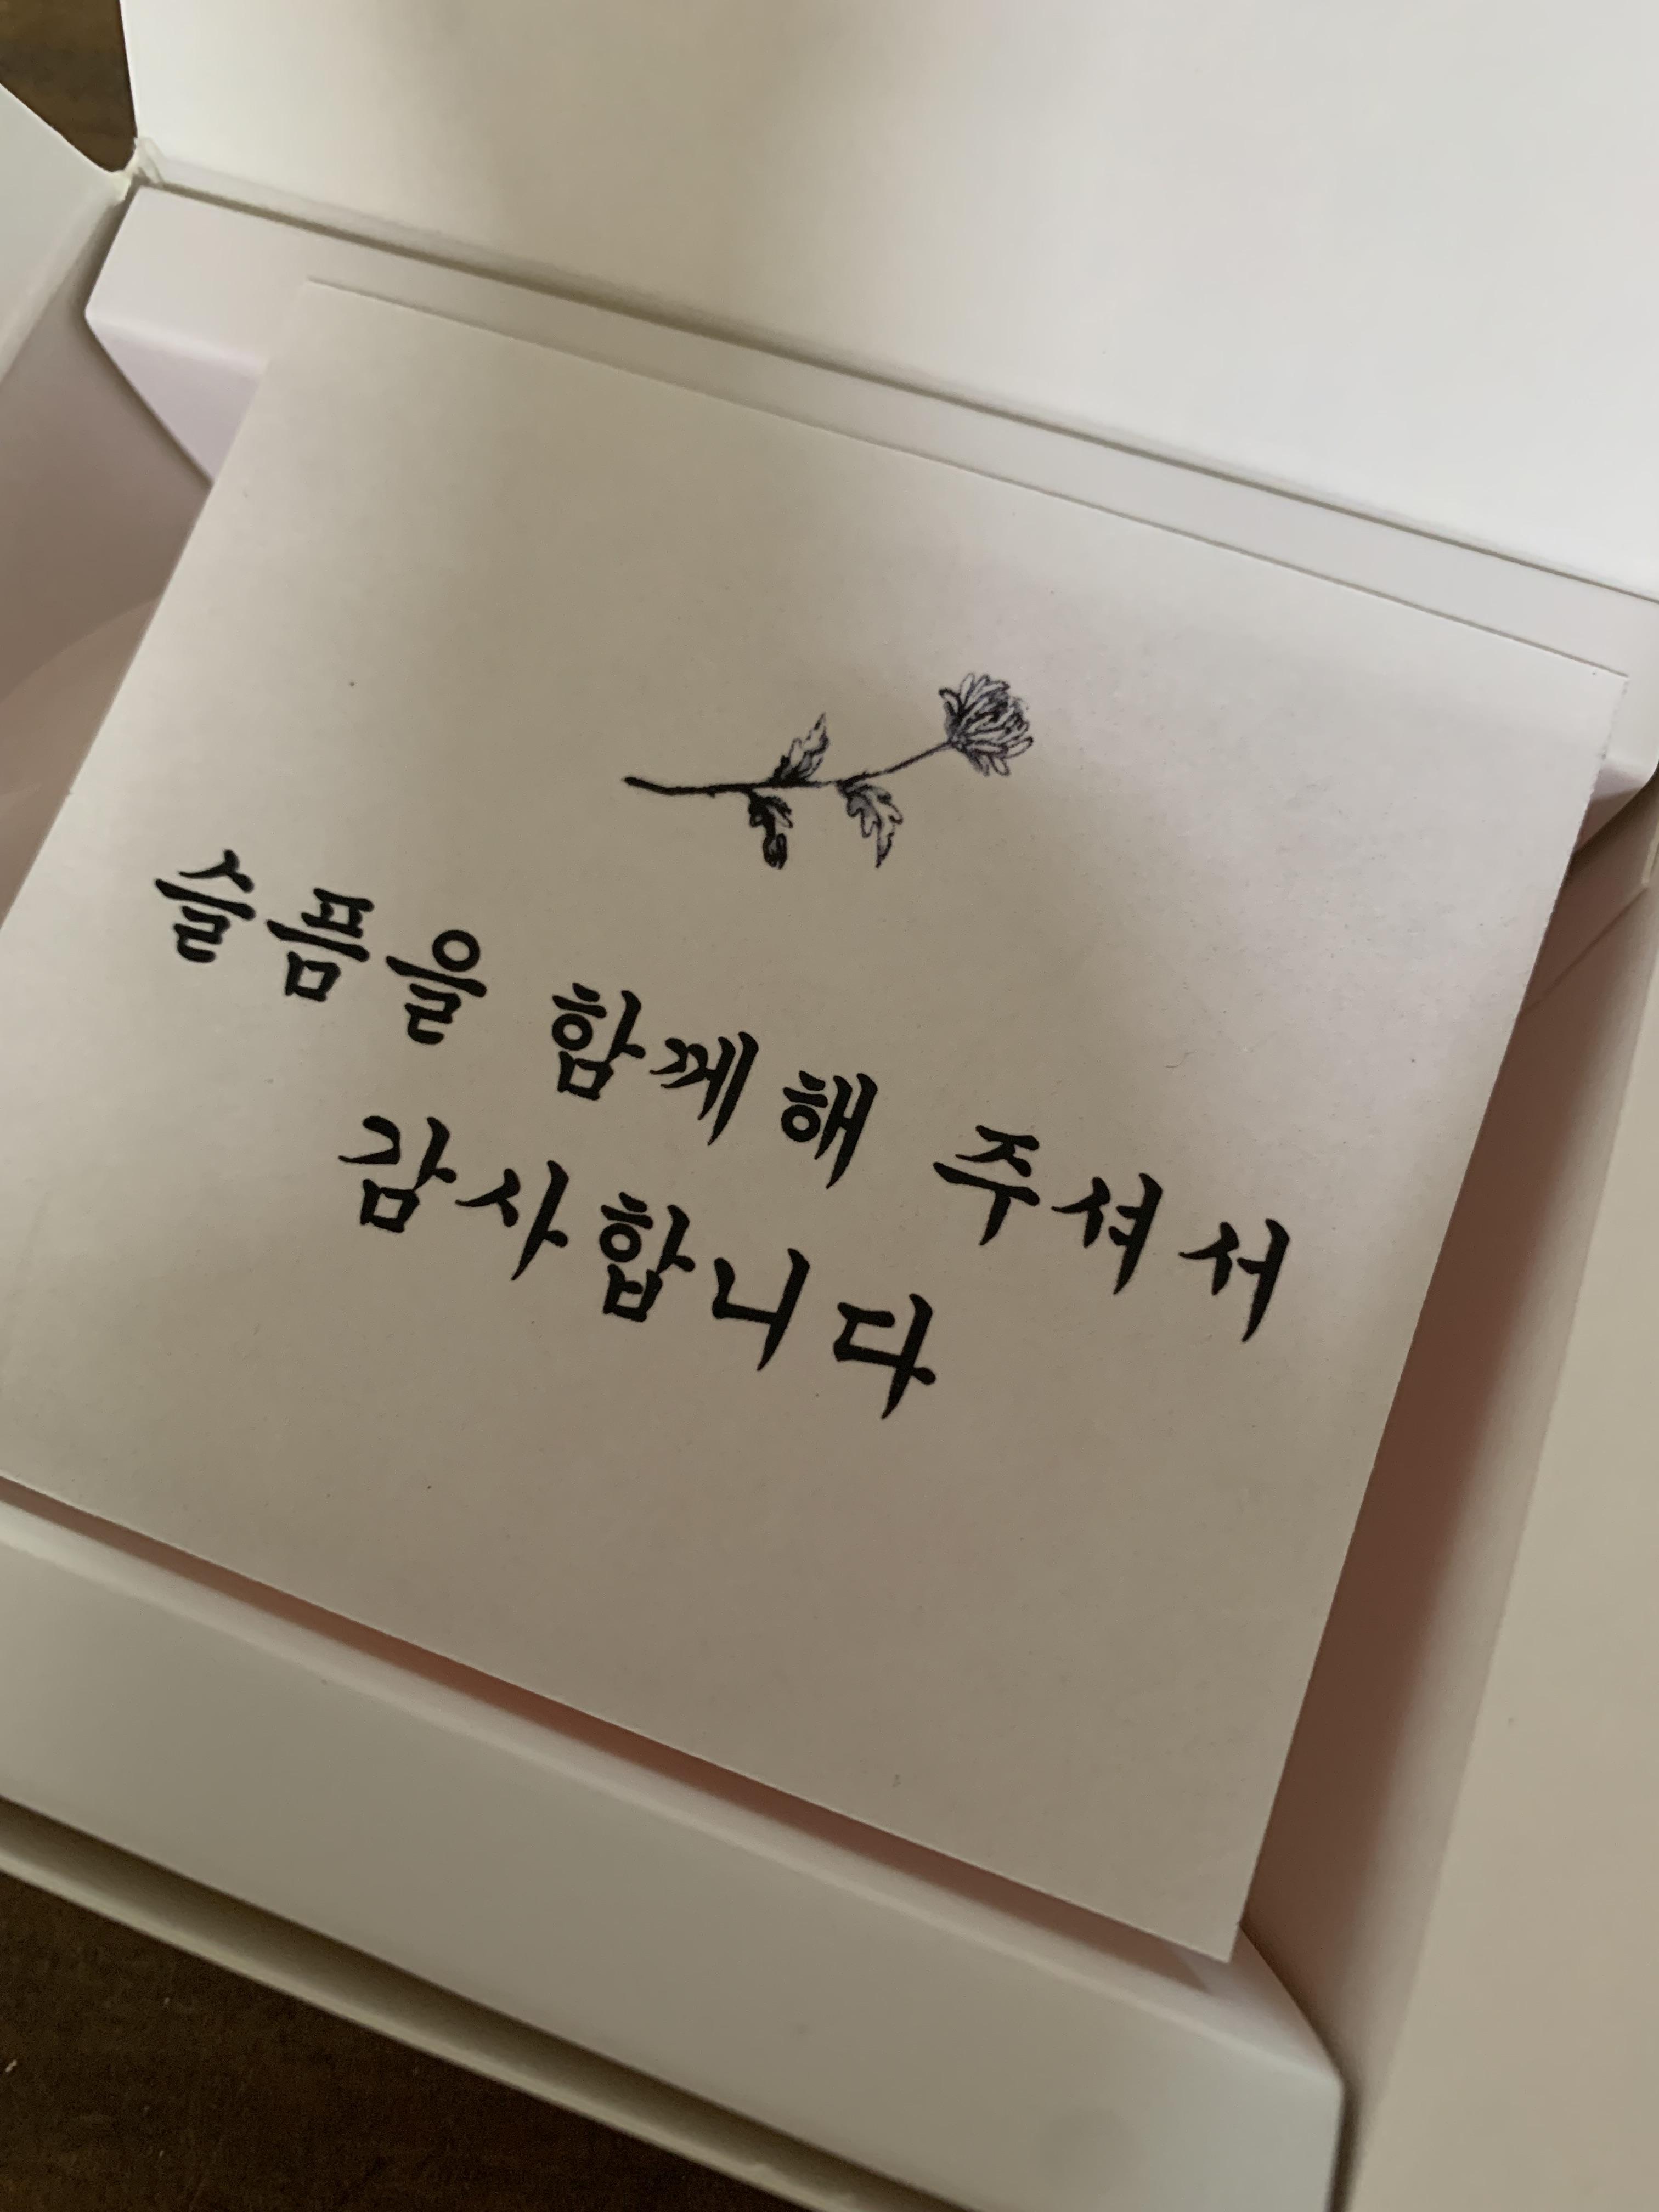 슬픔을 함께해 주셔서
감사합니다